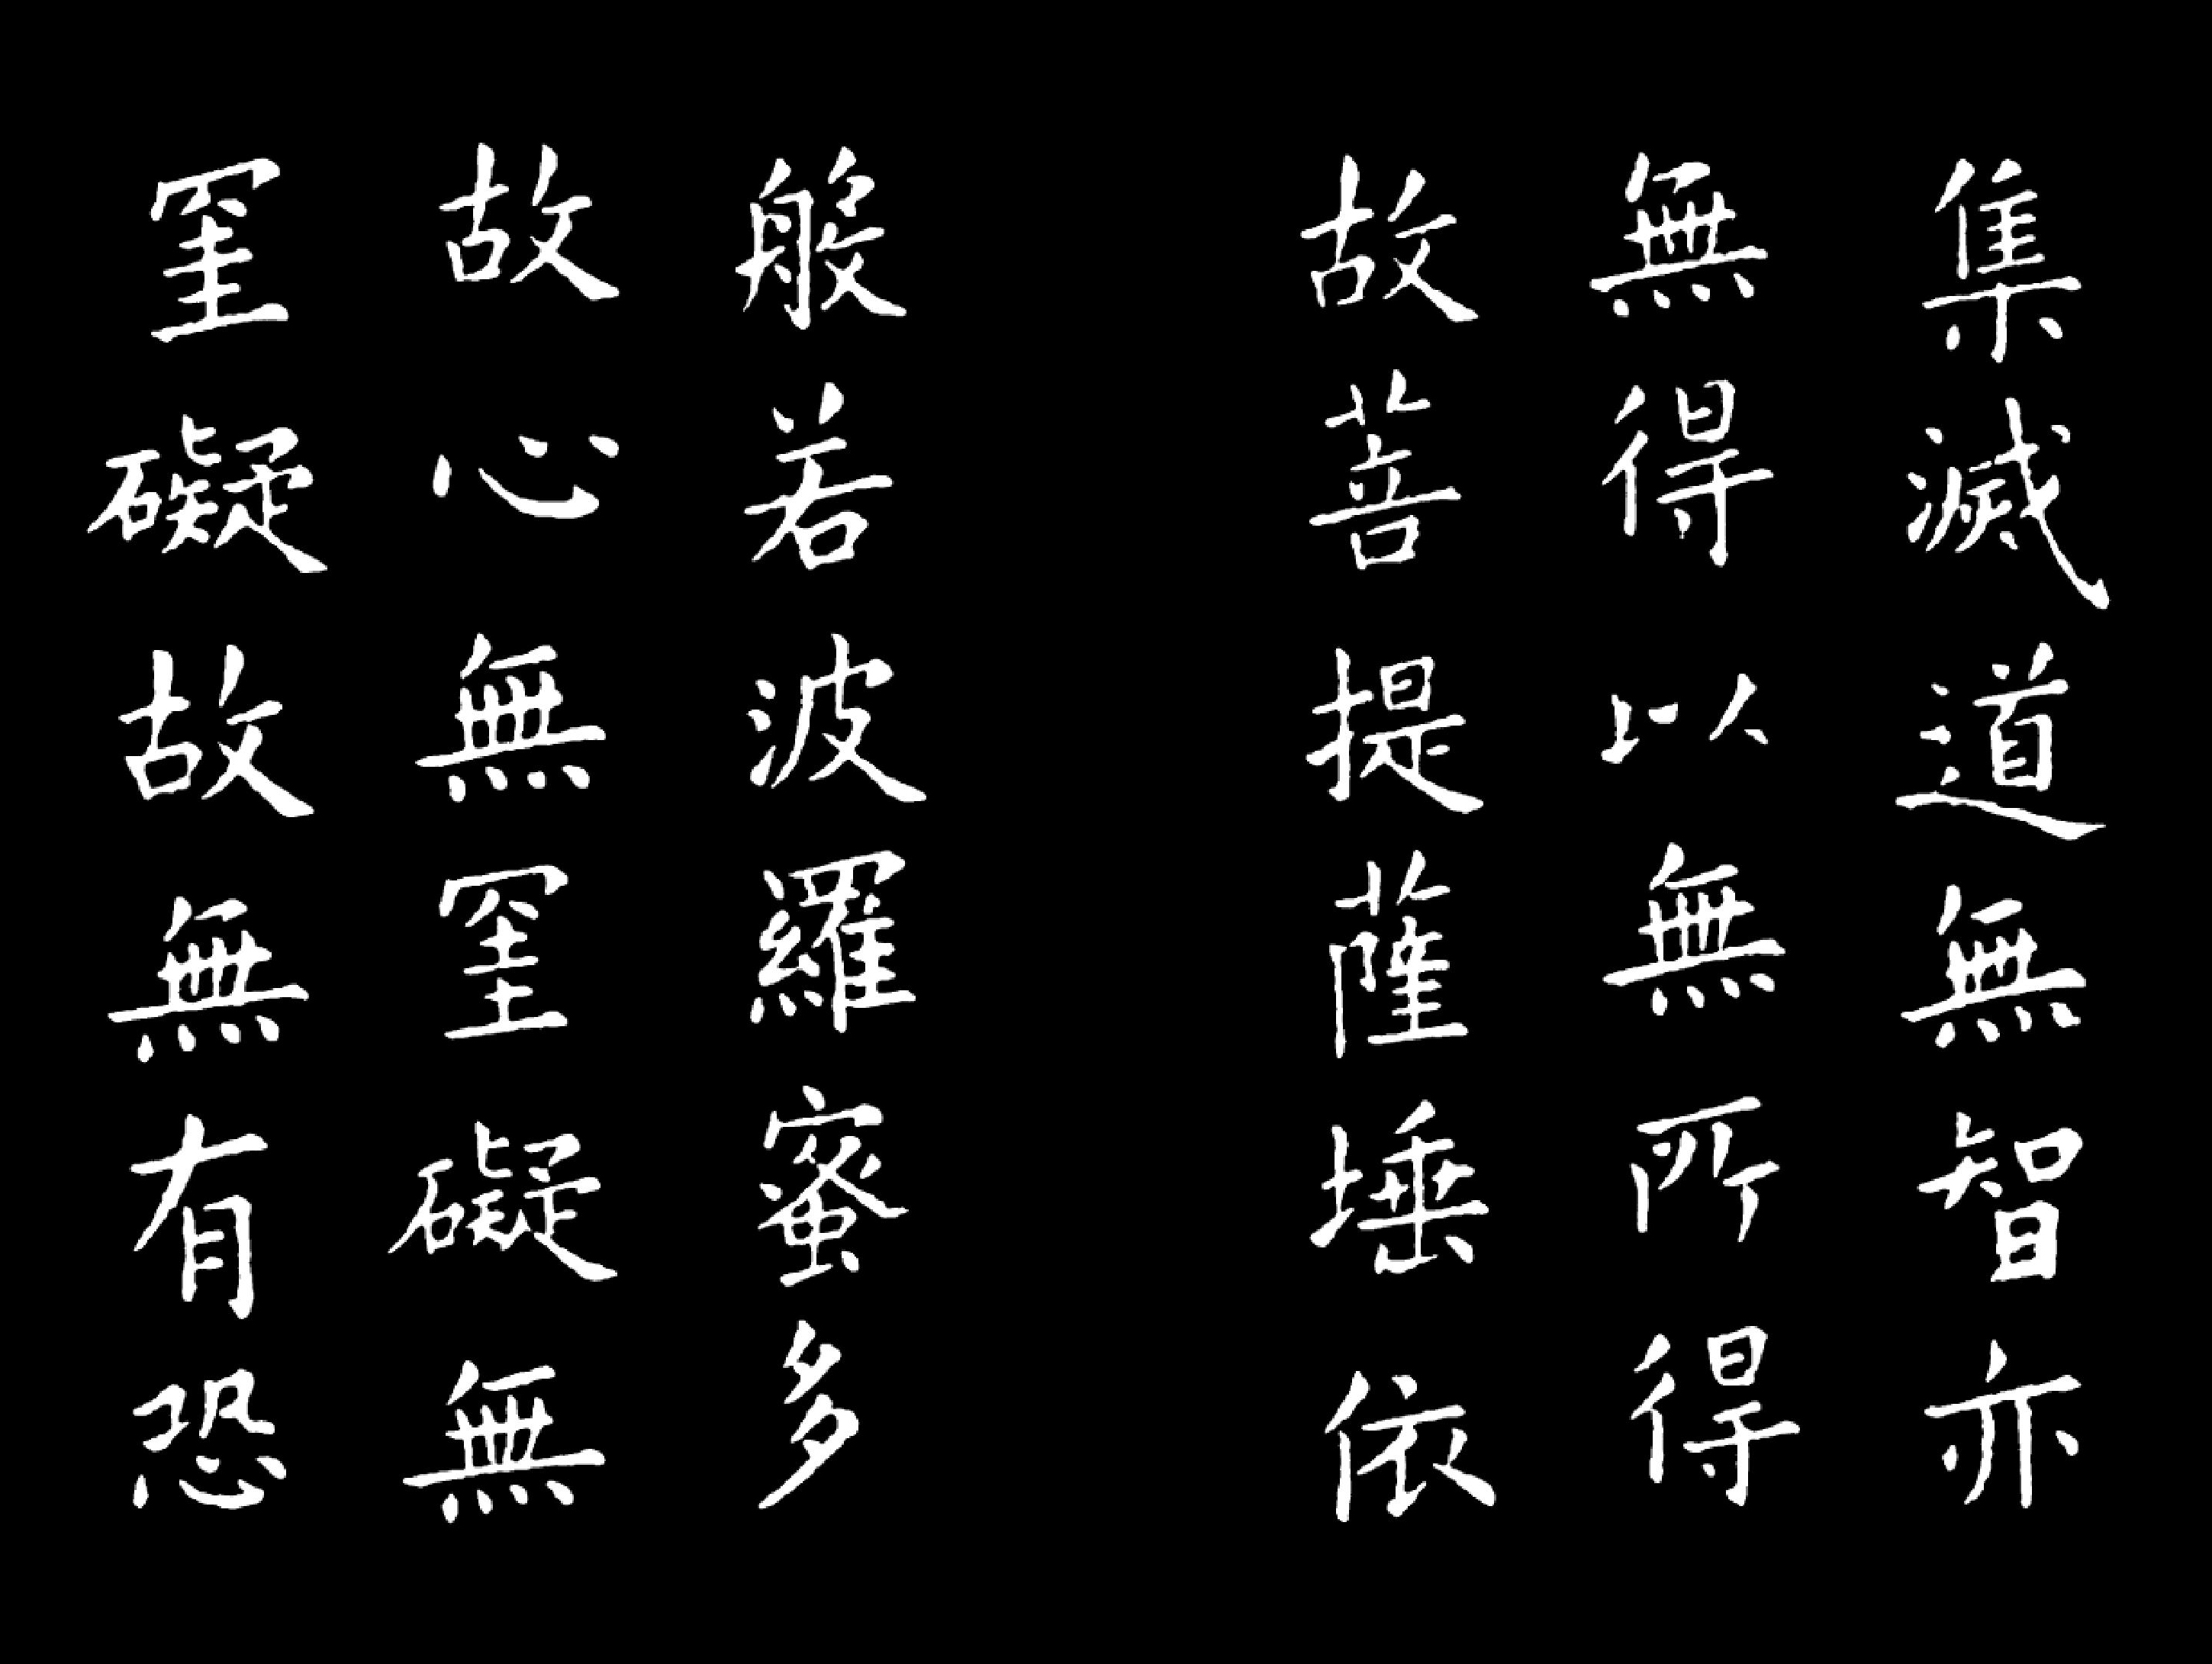 集滅道無智亦
無得以無所得
故菩提薩埵依
般若波羅蜜多
故心無罣礙無
罣礙故無有恐